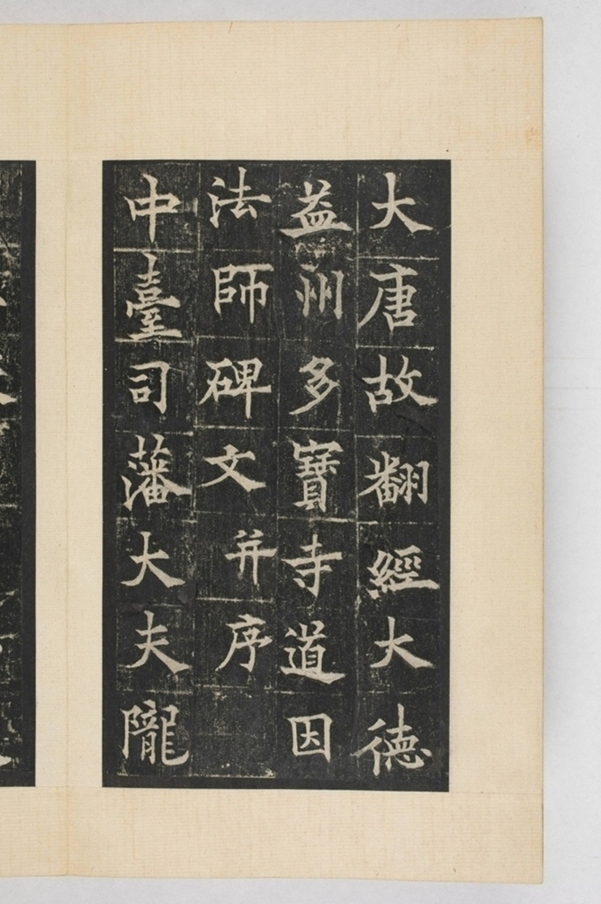 大唐故翻經大德
益州多寶寺道因
法師碑文并序
中臺司藩大夫隴